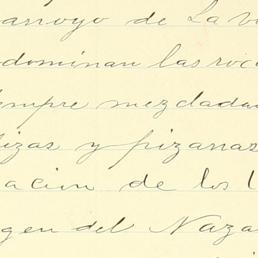 arroyo de La v
dominan las roc
siempre mezclada
lizas y pizarras
acion de los l
gen del Naza